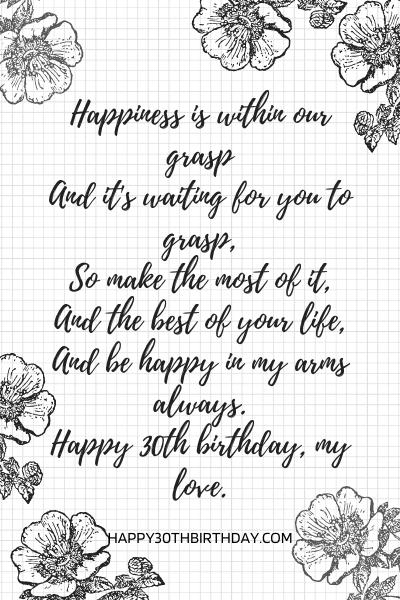 Happiness is within our
grasp
And it's waiting for you to
grasp,
So make the most of it,
And the best of your life,
And be happy in my arms
always.
Happy 30th birthday, my
love.
HAPPY30THBIRTHDAY.COM